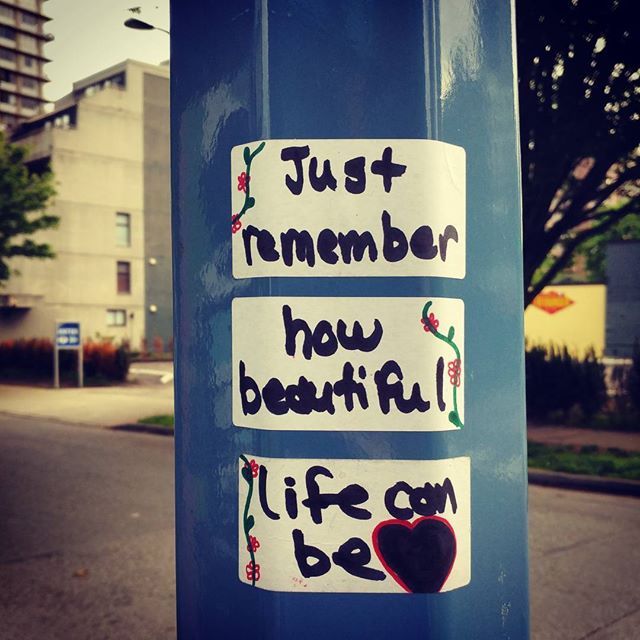 Just
remember
how
beautiful
life can
be